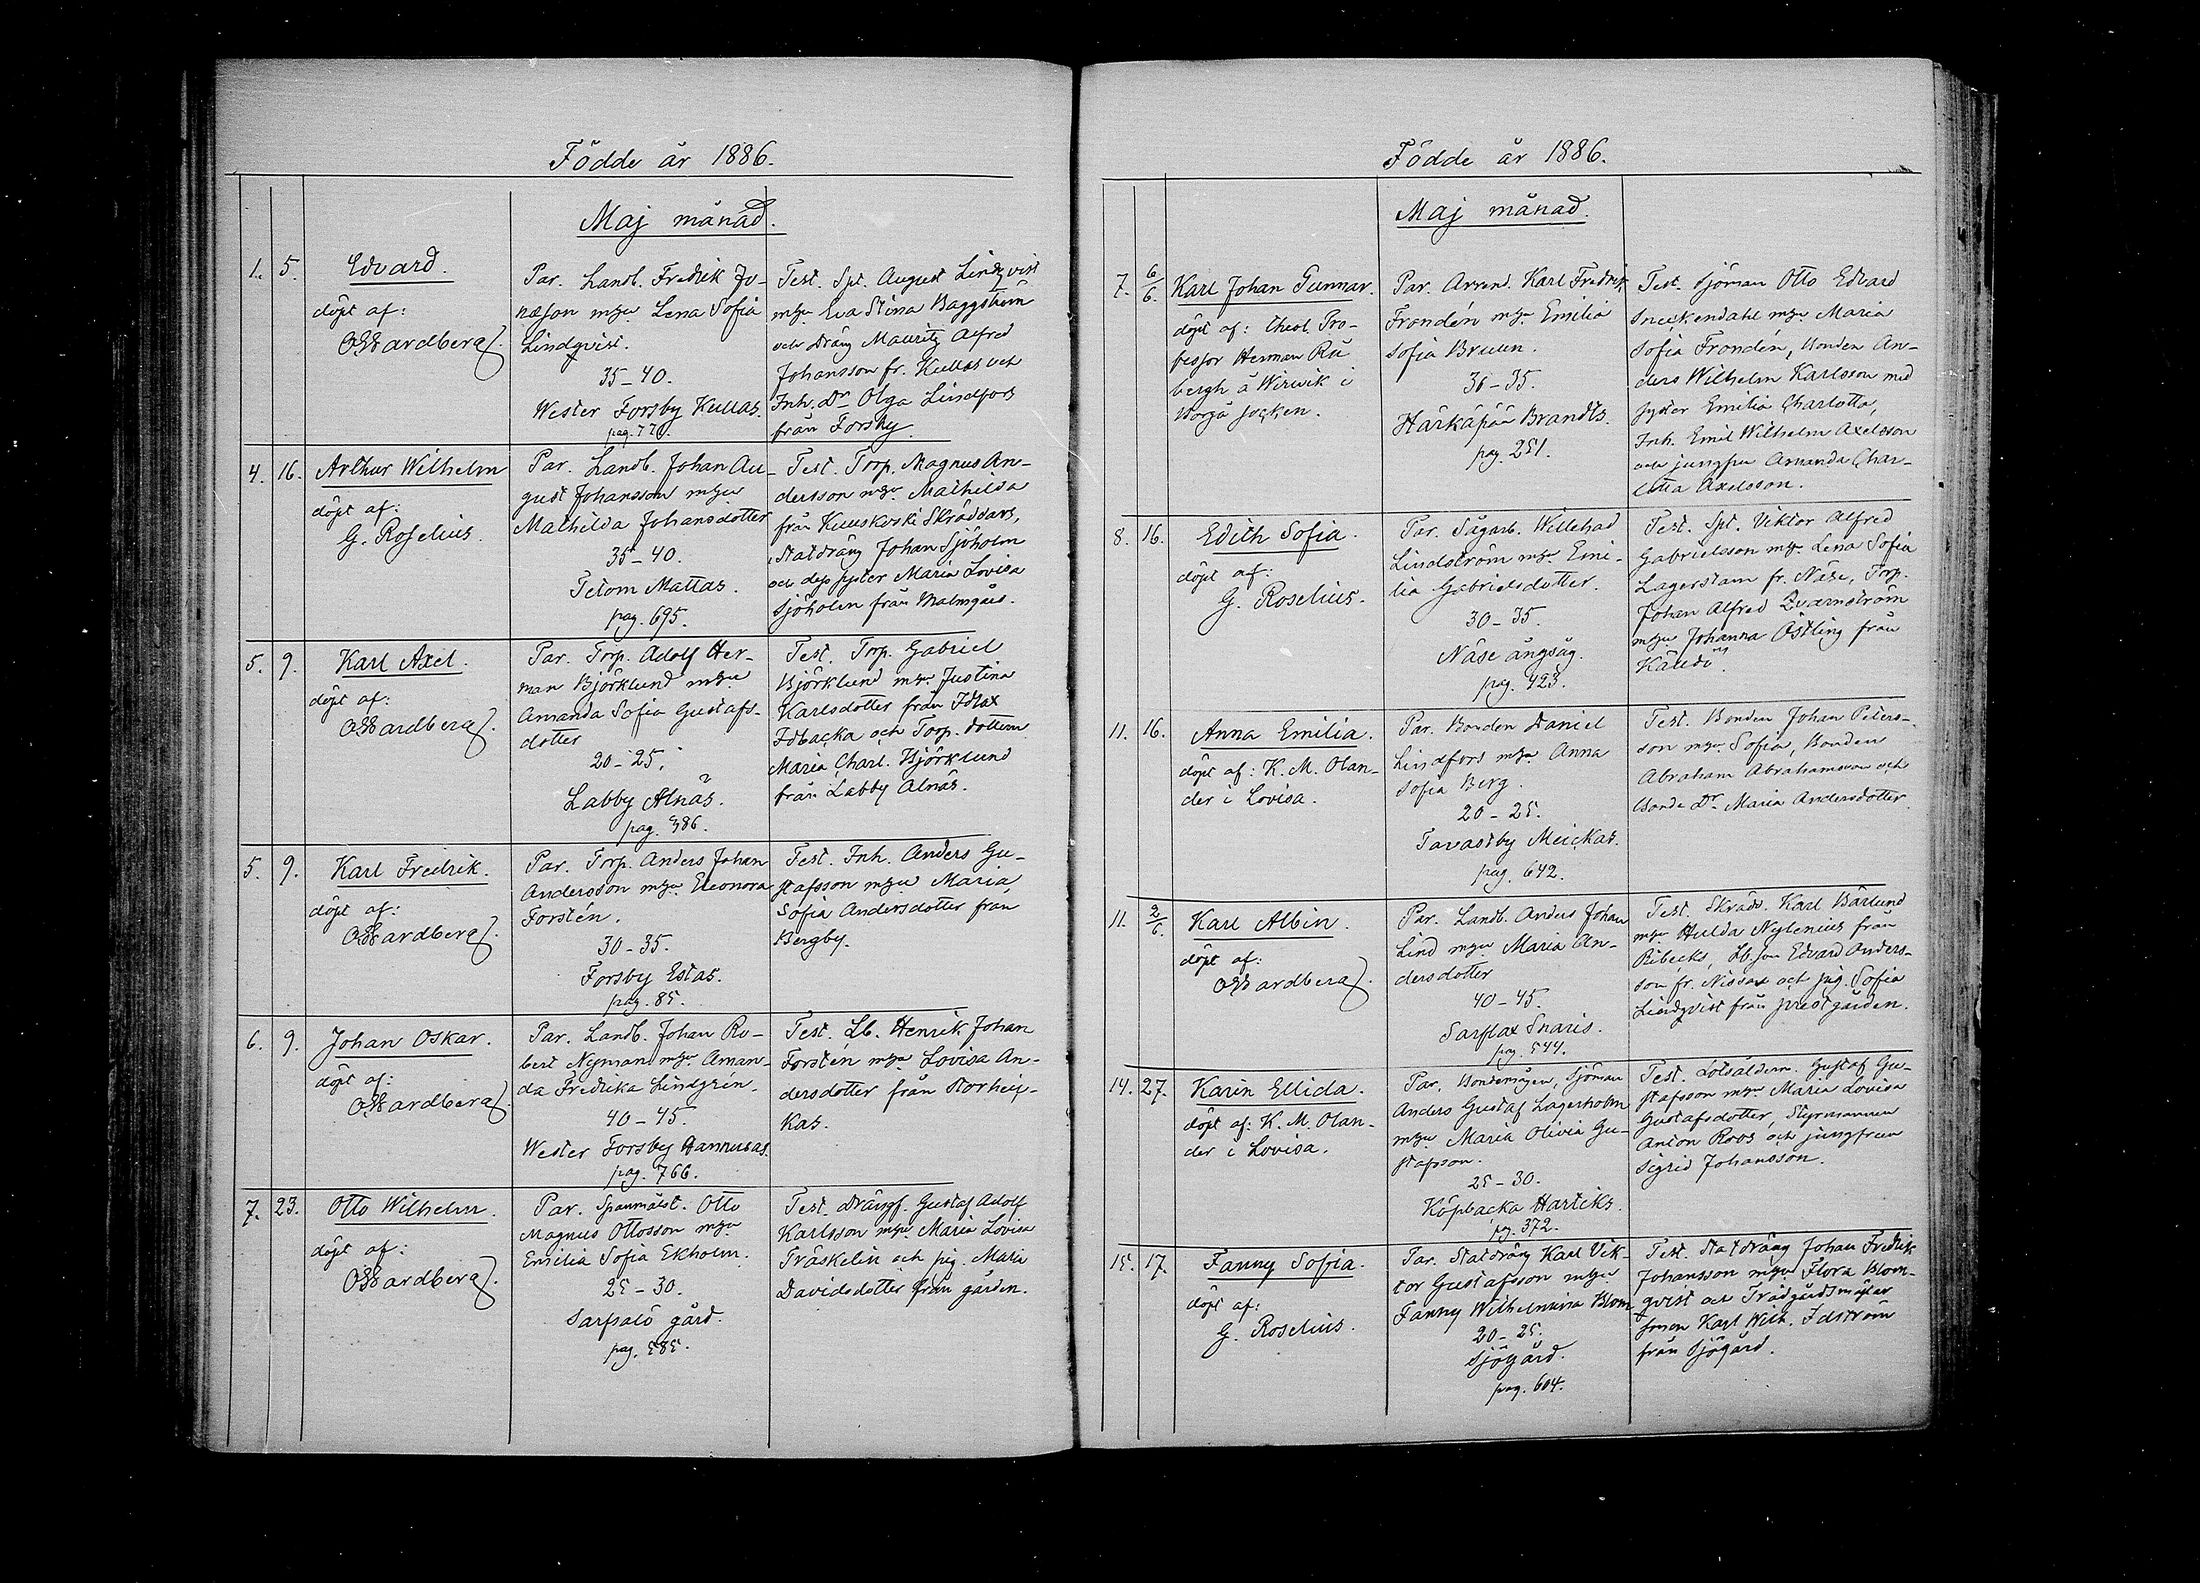 Födde år 1886.
Maj månad.
1. 5. Edvard.
döpt af:
Par. Landb. Fredrik Jo-
nasson m hu Lena Sofia
Lindqvist.
35-40.
Wester Forsby Kullas.
pag. 77
Test. Spt. August Lindqvist
m hu Eva Stina Baggström
och dräng Mauritz Alfred
Johansson fr. Kullas och
Inh. Dr Olga Lindfors
från Forsby.
4. 16. Arthur Wilhelm
döpt af:
G. Roselius.
Par. Landb. Johan Au-
gust Johansson m hu
Mathilda Johansdotter
35-40.
Tetom Mattas.
pag. 695.
Test. Torp. Magnus An-
dersson m hu Mathilda
från Kuuskoski Skräddars,
Statdräng Johan Sjöholm
och dess syster Maria Lovisa
Sjöholm från Malmgård.
5. 9. Karl Axel.
döpt af:
Par. Torp. Adolf Her-
man Björklund m hu
Amanda Sofia Gustafs-
dotter
20-25.
Labby Alnäs.
pag. 386.
Test. Torp. Gabriel
Björklund m hu Justina
Karlsdotter från Idlax
Idbacka och Torp. dottern
Maria Charl. Björklund
från Labby Alnäs.
5. 9. Karl Fredrik.
döpt af:
Par. Torp. Anders Johan
Andersson m hu Eleonora
Forstén.
30-35.
Forsby Estas.
pag. 85.
Test. Inh. Anders Gu-
stafsson m hu Maria
Sofia Andersdotter från
Bergby.
6. 9. Johan Oskar.
döpt af:
Par. Landb. Johan Ro-
bert Nyman m hu Aman-
da Fredrika Lindgrén.
40-45.
Wester Forsby Hannusas.
pag. 766.
Test. Lb. Henrik Johan
Forstén m hu Lovisa An-
dersdotter från Storhei-
kas.
7. 23. Otto Wilhelm.
döpt af:
Par. Spanmålst. Otto
Magnus Ottosson m hu
Emilia Sofia Ekholm.
25-30.
Sarfsalö gård.
pag. 585.
Test. Drängf. Gustaf Adolf
Karlsson m hu Maria Lovisa
Träskelin och pig. Maria
Davidsdotter från gården.
Födde år 1886.
Maj månad.
7. 6/6. Karl Johan Gunnar.
döpt af: Theol. Pro-
fessor Herman Rå
bergh å Wirwik i
Borgå socken.
Par. Arrend. Karl Fredrik
Frondén m hu Emilia
Sofia Bruun.
30-35.
Härkäpää Brandts.
pag. 251.
Test. Sjöman Otto Edvard
Sneckendahl m hu Maria
Sofia Frondén, Bonden An-
ders Wilhelm Karlsson med
syster Emilia Charlotta,
Inh. Emil Wilhelm Axelsson
och jungfru Amanda Char-
lotta Axelsson.
8. 16. Edith Sofia.
döpt af:
G. Roselius.
Par. Sågarb. Willehad
Lindström m hu Emi-
lia Gabrielsdotter.
30-35.
Näse ångsåg.
pag. 423.
Test. Spt. Viktor Alfred
Gabrielsson m hu Lena Sofia
Lagerstam fr. Näse, Torp.
Johan Alfred Qvarnström
m hu Johanna Östling från
11. 16. Anna Emilia.
döpt af: K. M. Olan-
der i Lovisa.
Par. Bonden Daniel
Lindfors m hu Anna
Sofia Berg.
20-25.
Tavastby Meickas.
pag. 642.
Test. Bonden Johan Peters-
son m hu Sofia, Bonden
Abraham Abrahamsson och
Bonde Dr. Maria Andersdotter.
11. 2/6. Karl Albin.
döpt af:
Par. Landb. Anders Johan
Lind m hu Maria An-
dersdotter
40-45.
Sarflax Snaris.
pag. 544.
Test. Skrädd. Karl Bärlund
m hu Hulda Nylenius från
Ribecks, Lb. son Edvard Anders-
son fr. Nissas och pig. Sofia
Lindqvist från prestgården.
14. 27. Karin Ellida.
döpt af: K. M. Olan-
der i Lovisa.
Par. Bondemågen, Sjöman
Anders Gustaf Lagerholm
m hu Maria Olivia Gu-
stafsson.
25-30.
Köpbacka Harticks.
pg. 372.
Test. Lotsåldern. Gustaf Gu-
stafsson m hu Maria Lovisa
Gustafsdotter, Styrmannen
Anton Roos och jungfrun
Sigrid Johansson.
15. 17. Fanny Sofia.
döpt af:
G. Roselius.
Par. Statdräng Karl Vik-
tor Gustafsson m hu
Fanny Wilhelmina Blom
20-25.
Sjögård.
pag. 604.
Test. Statdräng Johan Fredrik
Johansson m hu Flora Blom-
qvist och Trädgårdsmästar
sonen Karl Wilh. Idström
från Sjögård.